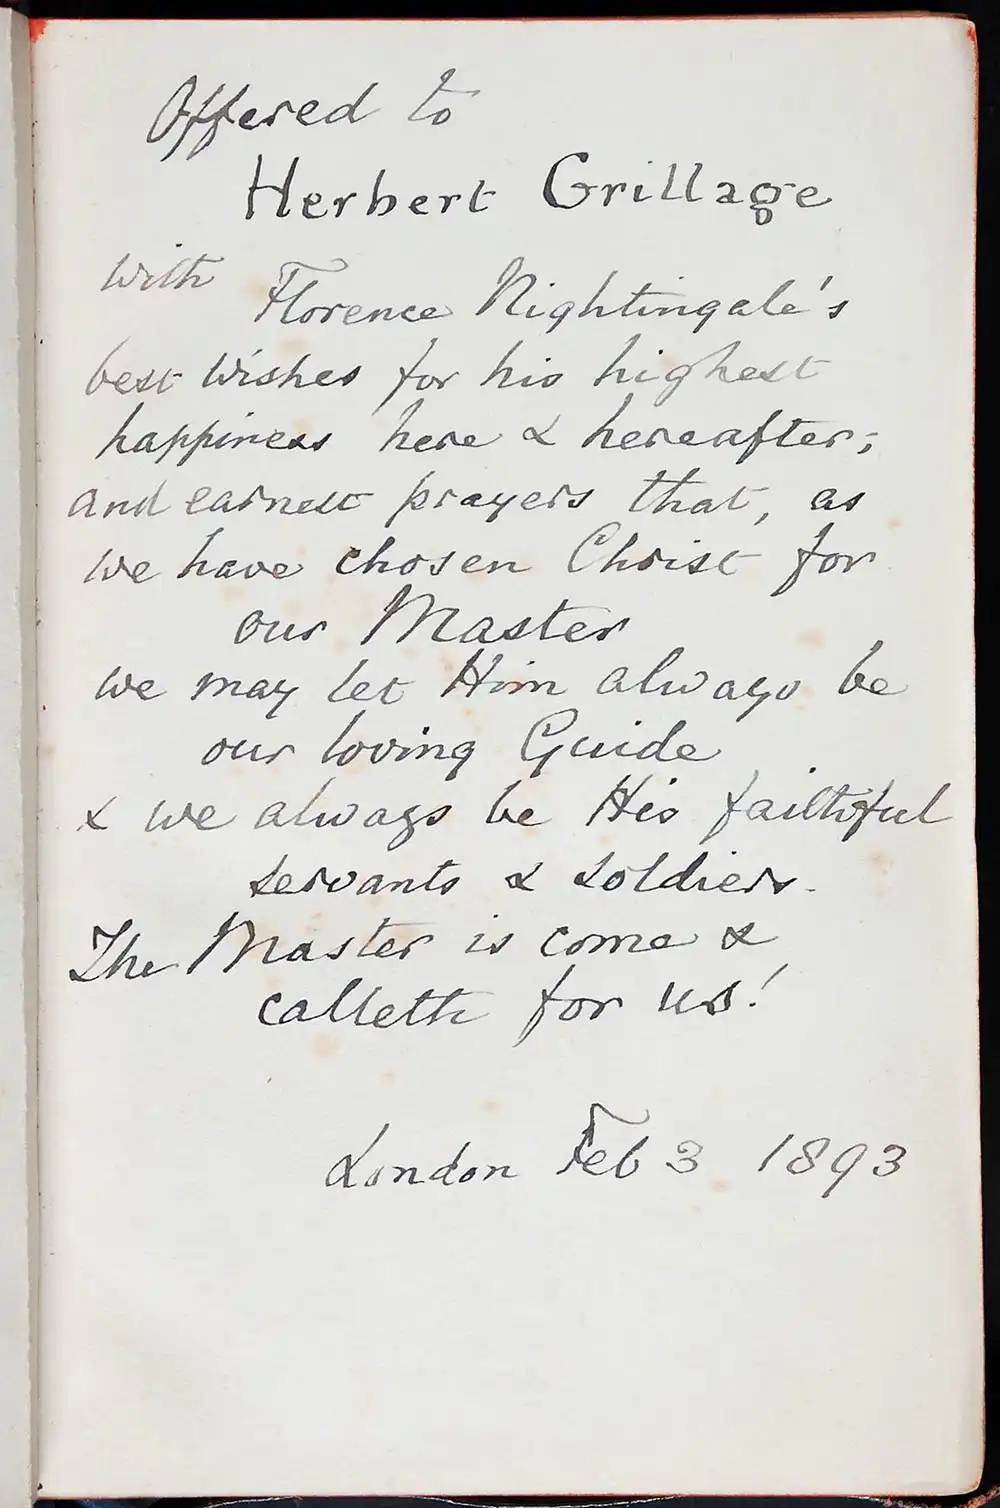 Offered to
Herbert Grillage
with Florence Nightingale's
best wishes for his highest
happiness here & hereafter;
and earnest prayers that, as
we have chosen Christ for
our Master
we may let Him always be
our loving Guide
& we always be His faithful
servants & soldiers.
The Master is come &
calleth for us!
London Feb 3 1893